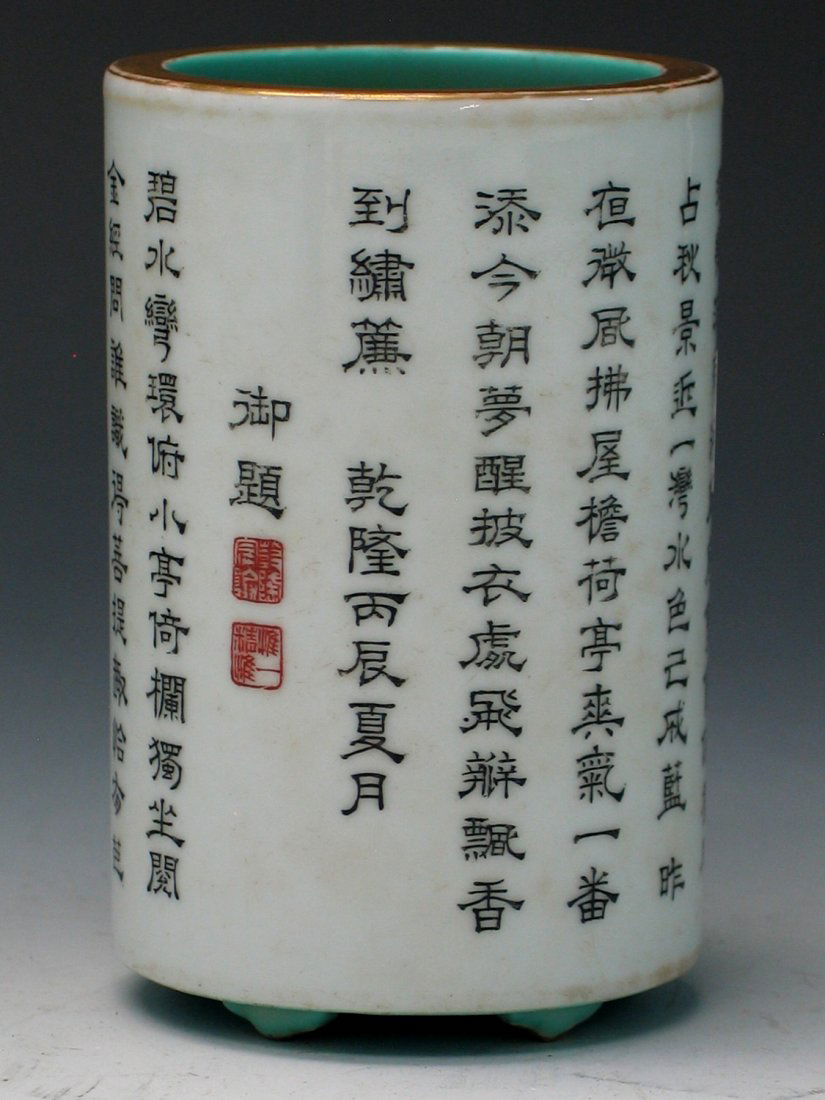 占秋景近一灣水色已成藍 昨
夜微風拂屋檐荷亭爽氣一番
添今朝夢醒披衣處飛瓣飄香
到繡簾 乾隆丙辰夏月
御題
乾隆宸翰
惟精惟一
碧水彎環俯小亭倚欄獨坐閱
金經問誰識得菩提